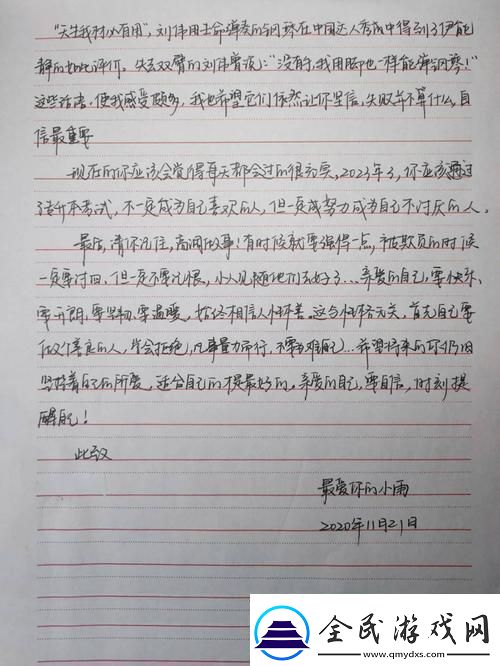 “天生我材必有用”，刘伟用生命弹奏的钢琴在中国达人秀中得到了伊能
静的如此评价。失去双臂的刘伟曾说：“没有手，我用脚也一样能弹钢琴！”
这些话语，使我感受颇多，我也希望它们依然让你坚信，失败并不算什么，自
信最重要
现在的你应该会觉得每天都会过的很充实，2023年了，你应该通过
专升本考试，不一定成为自己喜欢的人，但一定成努力成为自己不讨厌的人。
最后，请你记住，高调做事！有时候就要强得一点，被欺负的时候
一定要讨回，但一定不要记恨，小人见随他们去好了…亲爱的自己，要快乐、
要开朗、要坚韧、要温暖，始终相信人性本善。这与性格无关，首先自己要
做个善良的人，学会拒绝，凡事量力而行，不要为难自己…希望将来的你仍旧
坚持着自己的所爱，适合自己的都是最好的。亲爱的自己，要自信，时刻提
醒自己！
此致
最爱你的小雨
2020年11月21日
全民游戏网
www.qmydxs.com